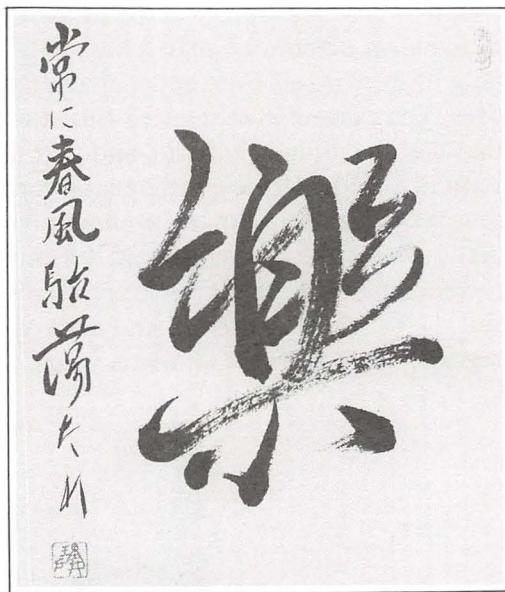 樂
常に春風駘蕩たれ